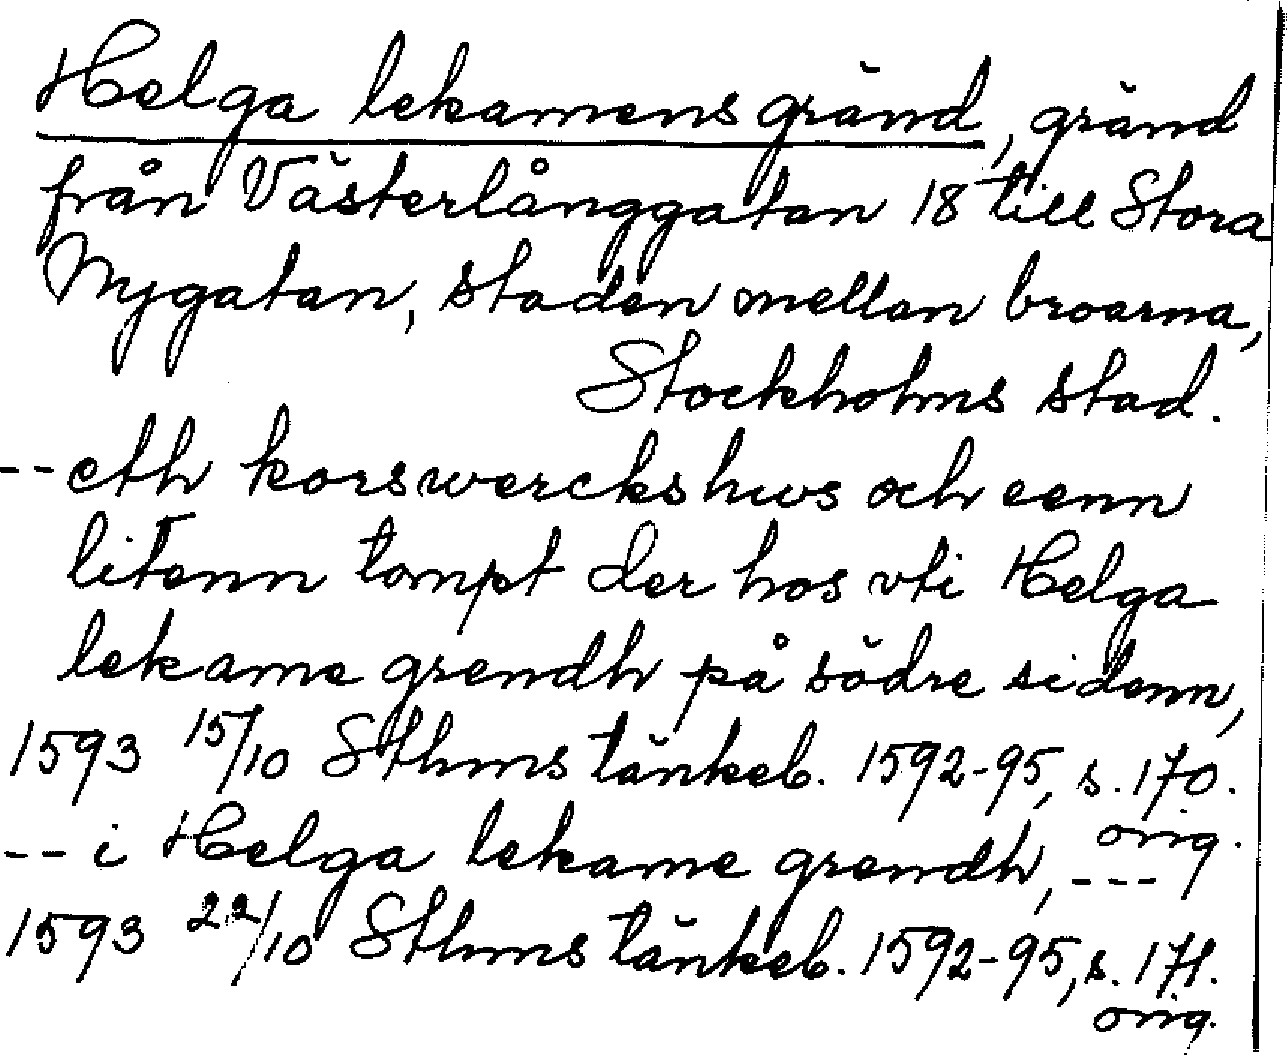 Helga lekamens gränd, gränd
från Västerlånggatan 18 till Stora
Nygatan, staden mellan broarna,
Stockholms stad.
-- eth korswerckshws och eenn
litenn tompt der hos vti Helga
lekame grendh på södre sidenn,
1593 15/10 Sthms tänkeb. 1592-95, s. 170.
orig.
-- i Helga lekame grendh, ---
1593 22/10 Sthms tänkeb. 1592-95, s. 171.
orig.